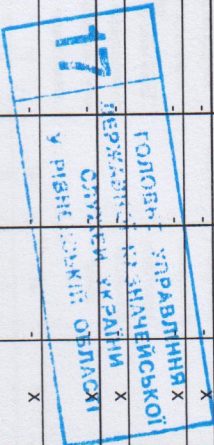 17
ГОЛОВНЕ УПРАВЛІННЯ
ДЕРЖАВНОЇ КАЗНАЧЕЙСЬКОЇ
СЛУЖБИ УКРАЇНИ
У РІВНЕНСЬКІЙ ОБЛАСТІ
- - -
- - -
- -
х х х х